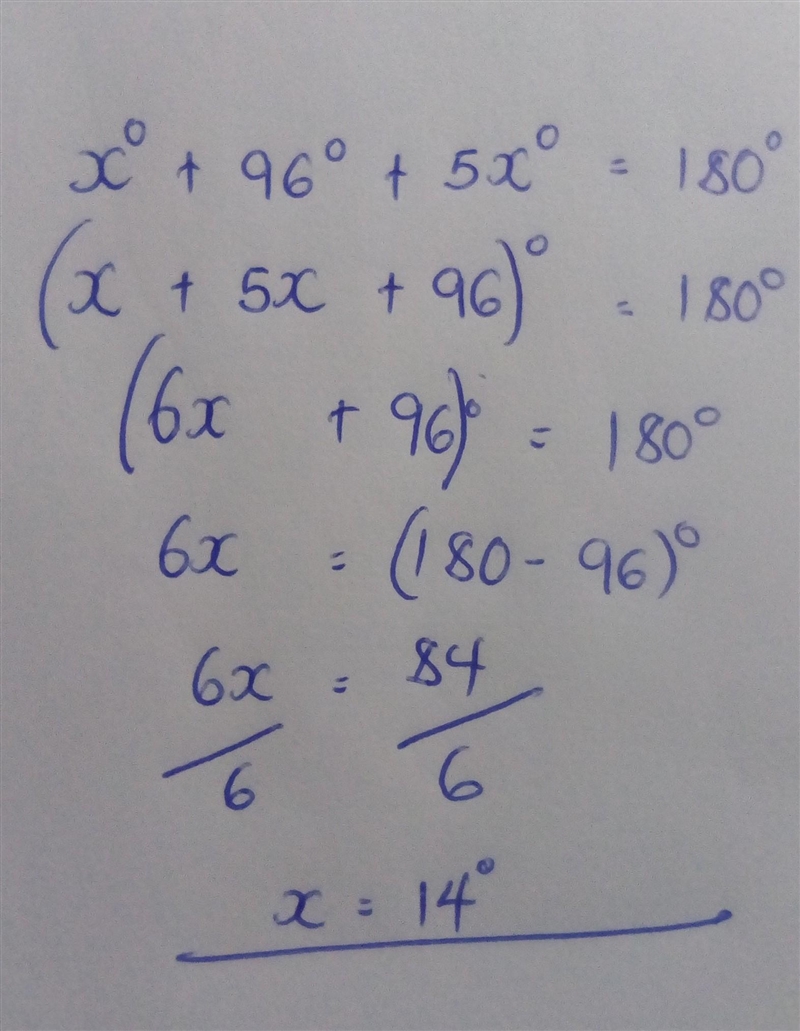 x° + 96° + 5x° = 180°
(x + 5x + 96)° = 180°
(6x + 96)° = 180°
6x = (180 - 96)°
6x/6 = 84/6
x = 14°